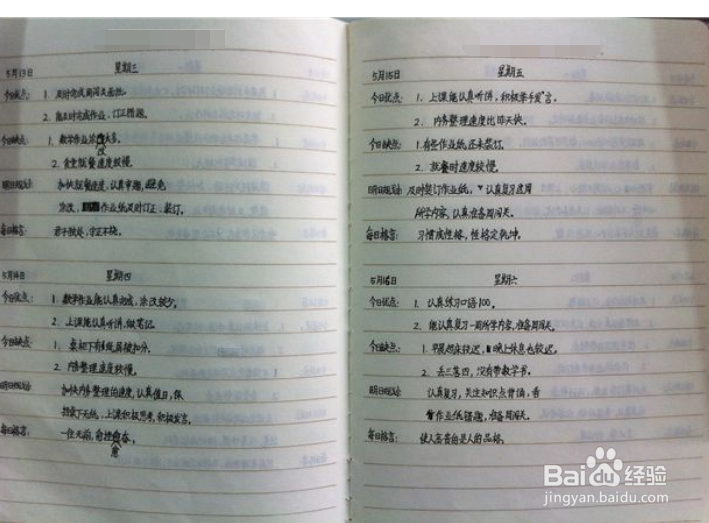 5月13日 星期三
今日优点： 1、及时完成周阅及
2、能及时完成作业、订正错题。
今日缺点： 1、数学作业涂改太多。
2、食堂就餐速度较慢。
明日规划： 加快就餐速度，认真审题，避免
涂改，作业纸及时订正、装订。
每日格言： 君子独处，守正不挠。
5月14日 星期四
今日优点： 1、数学作业能认真完成，涂改较少。
2、上课能认真听讲，做笔记
今日缺点： 1、桌初下有纸屑被扣分。
2、内务整理速度较慢。
明日规划： 加快内务整理的速度，认真值日，保
持桌下无纸，上课积极思考，积极发言。
每日格言： 一往无前，愈挫愈奋。
5月15日 星期五
今日优点： 1、上课能认真听讲，积极举手发言。
2、内务整理速度比昨天快。
今日缺点： 1、有些作业纸还未装订。
2、就餐时速度较慢。
明日规划： 及时装订作业纸，认真复习这周
所学内容，认真准备周周关。
每日格言： 习惯成性格，性格定乾坤。
5月16日 星期六
今日优点： 1、认真练习口语100。
2、能认真复习一周所学内容，准备周周关。
今日缺点： 1、早晨起床较迟，晚上休息也较迟。
2、丢三落四，没有带数学书。
明日规划： 认真复习，关注知识点背诵，查
看作业纸错题，准备周周关。
每日格言： 使人高贵的是人的品格。
Baidu经验
jingyan.baidu.com